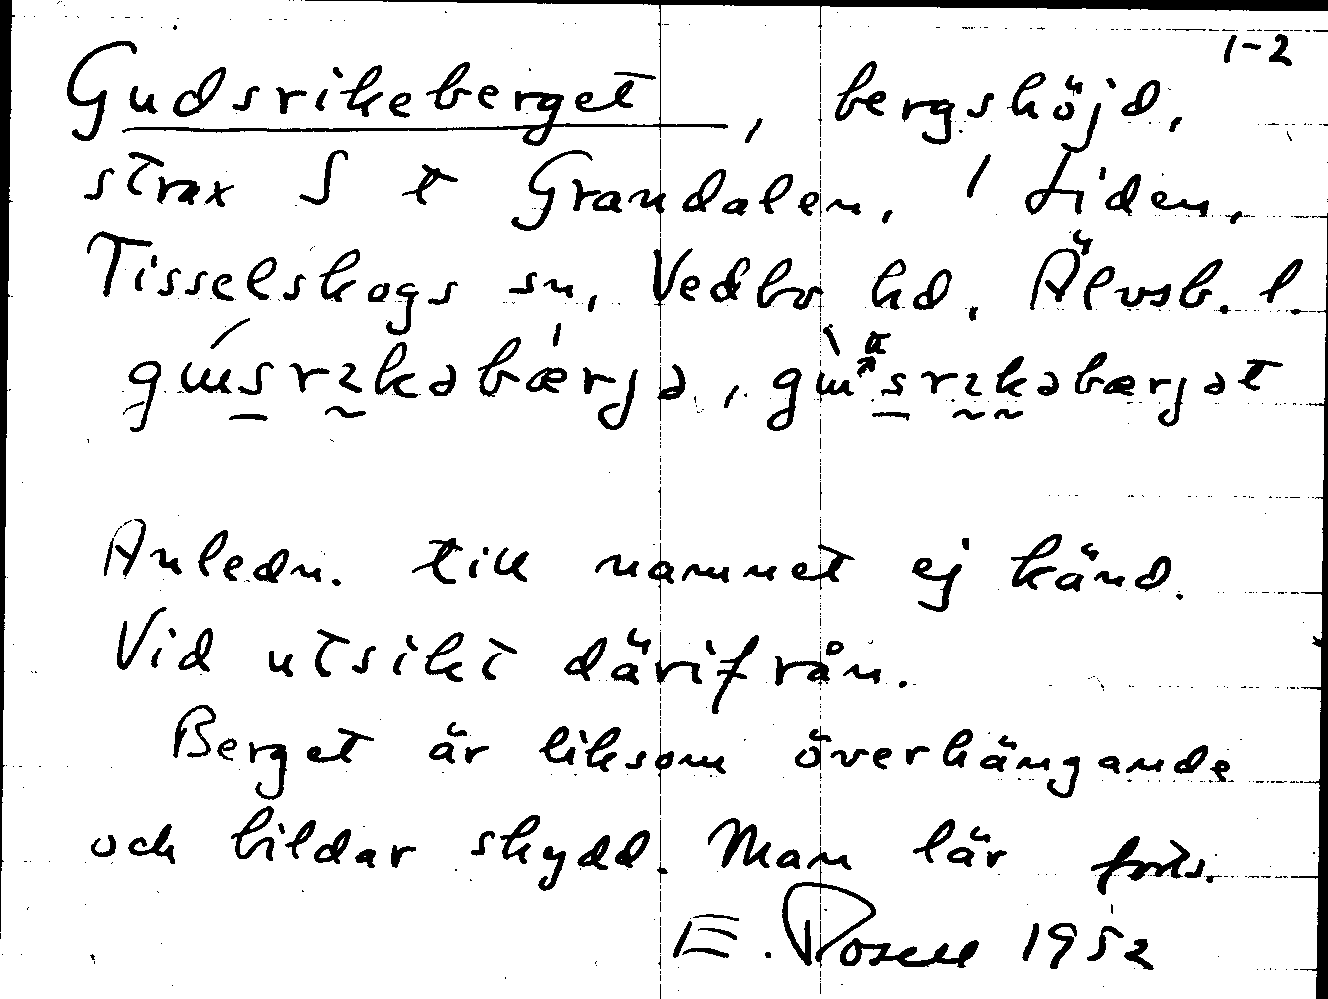 1-2
Gudsrikeberget, bergshöjd,
strax S t Grandalen, 1 Liden,
Tisselskogs sn, Vedbo hd, Älvsb. l.
Anledn. till namnet ej känd.
Vid utsikt därifrån.
Berget är liksom överhängande
och bildar skydd. Man lär forts.
E. Rosell 1952